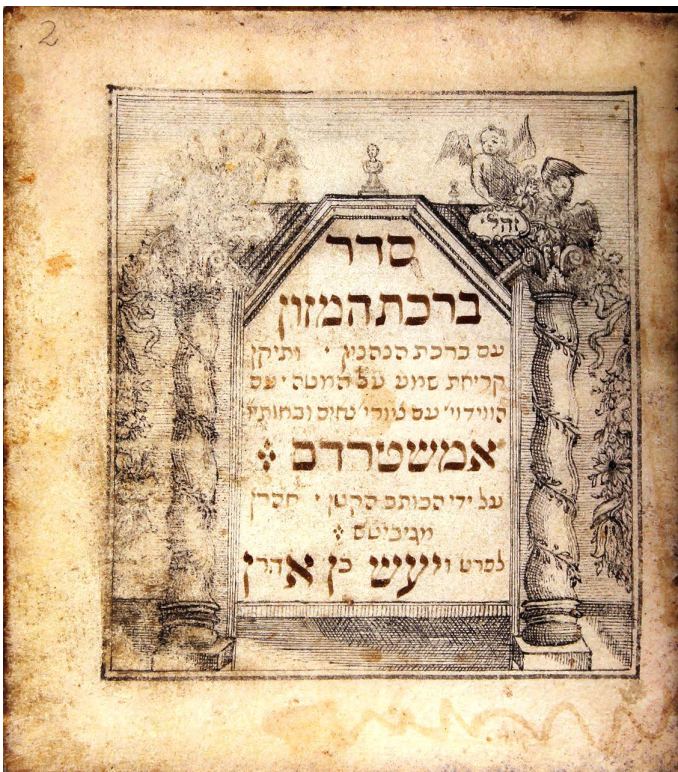 2
זהלי
סדר
ברכת המזון
עם ברכת הנהנין ותיקן
קריאת שמע על המטה עם
הווידוי עם ציורי נחים ובאותיו
אמשטרדם
על ידי הכותב הקטן אהרן
לפרט ויעש כן אהרן